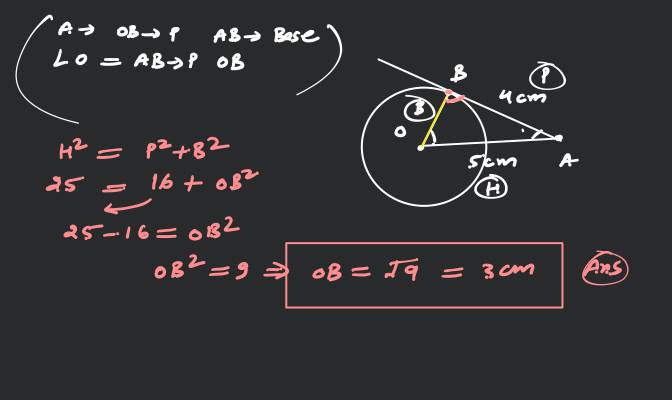 A→ OB→P AB→ Base
∠O = AB→P OB
B
P
4cm
B
O
5cm
A
H
H² = P²+B²
25 = 16 + OB²
25-16 = OB²
OB² = 9 ⇒ OB = √9 = 3cm Ans